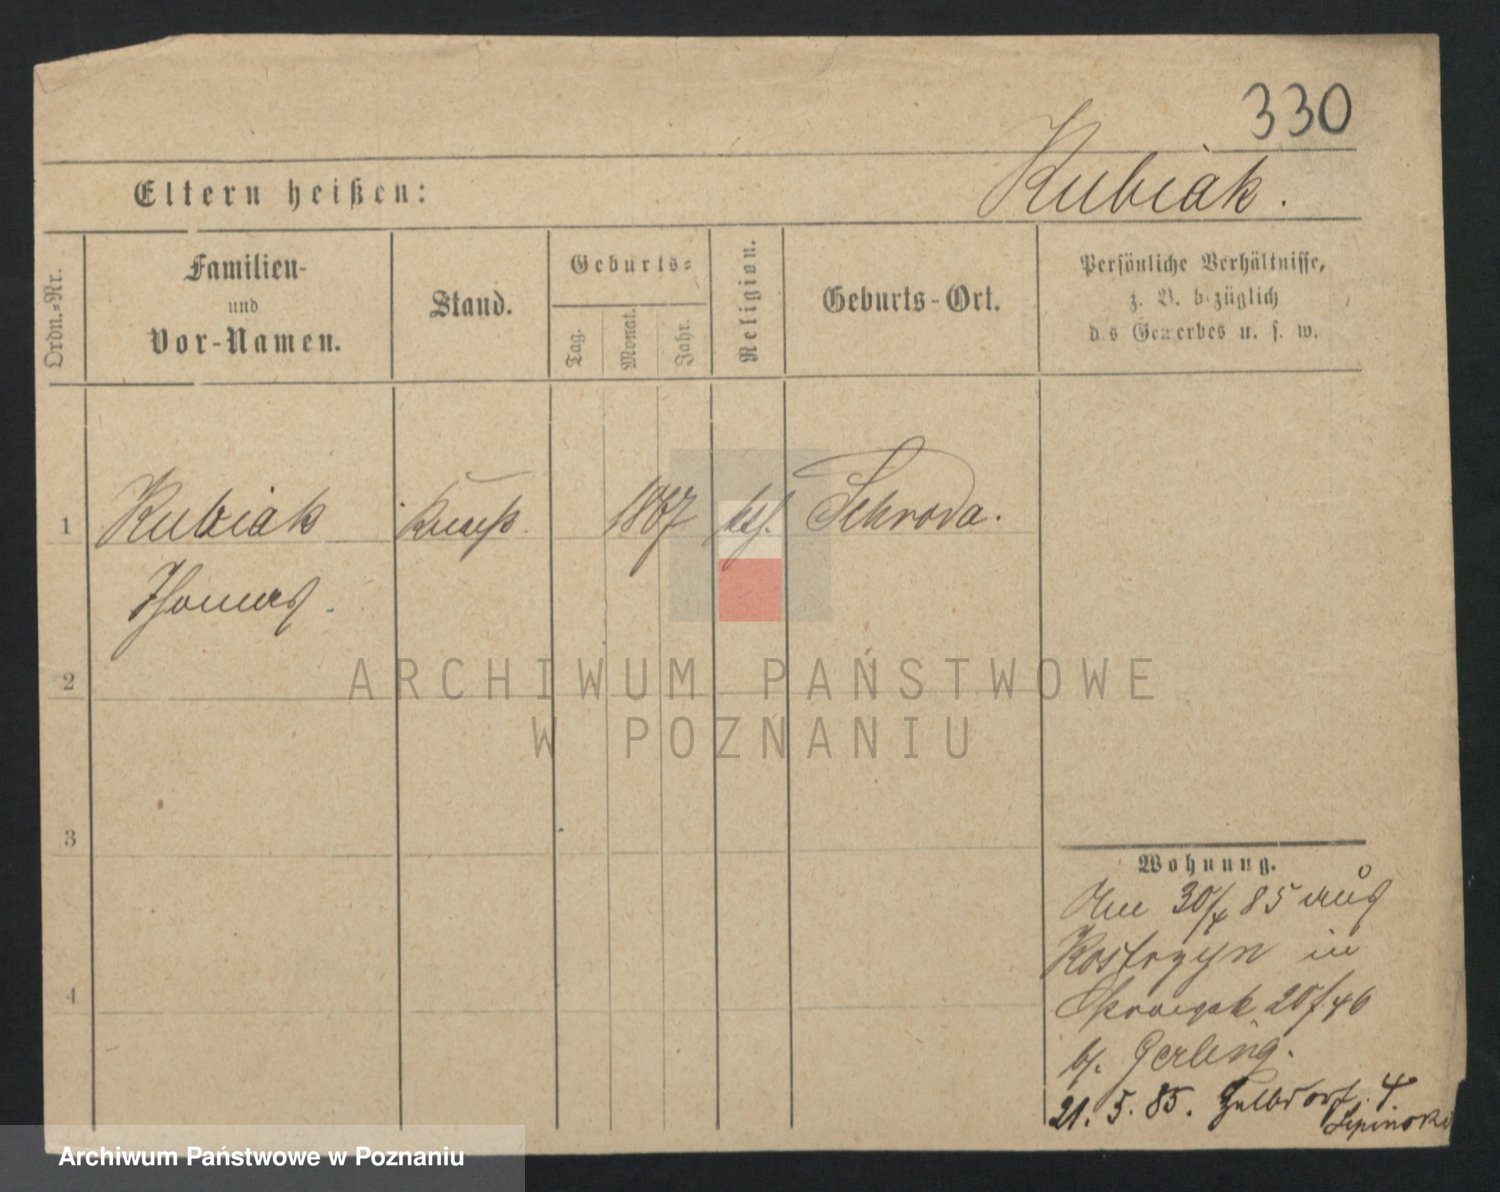 330
Kubiak.
Eltern heißen:
Ordn.-Nr.
Familien-
und
Vor-Namen.
Stand.
Geburts-
Tag.
Monat.
Jahr.
Religion.
Geburts-Ort.
Persönliche Verhältnisse,
z. B. bezüglich
des Gewerbes u. s. w.
1
Kubiak
Knecht.
1867
kth.
Schroda.
Thomas.
2
3
4
Wohnung.
Am 30/4 85 aus
Kostrzyn in
20/46
b/. Gerling.
21. 5. 85. Halbdorf. 4.
Lipinski
ARCHIWUM PAŃSTWOWE
W POZNANIU
Archiwum Państwowe w Poznaniu